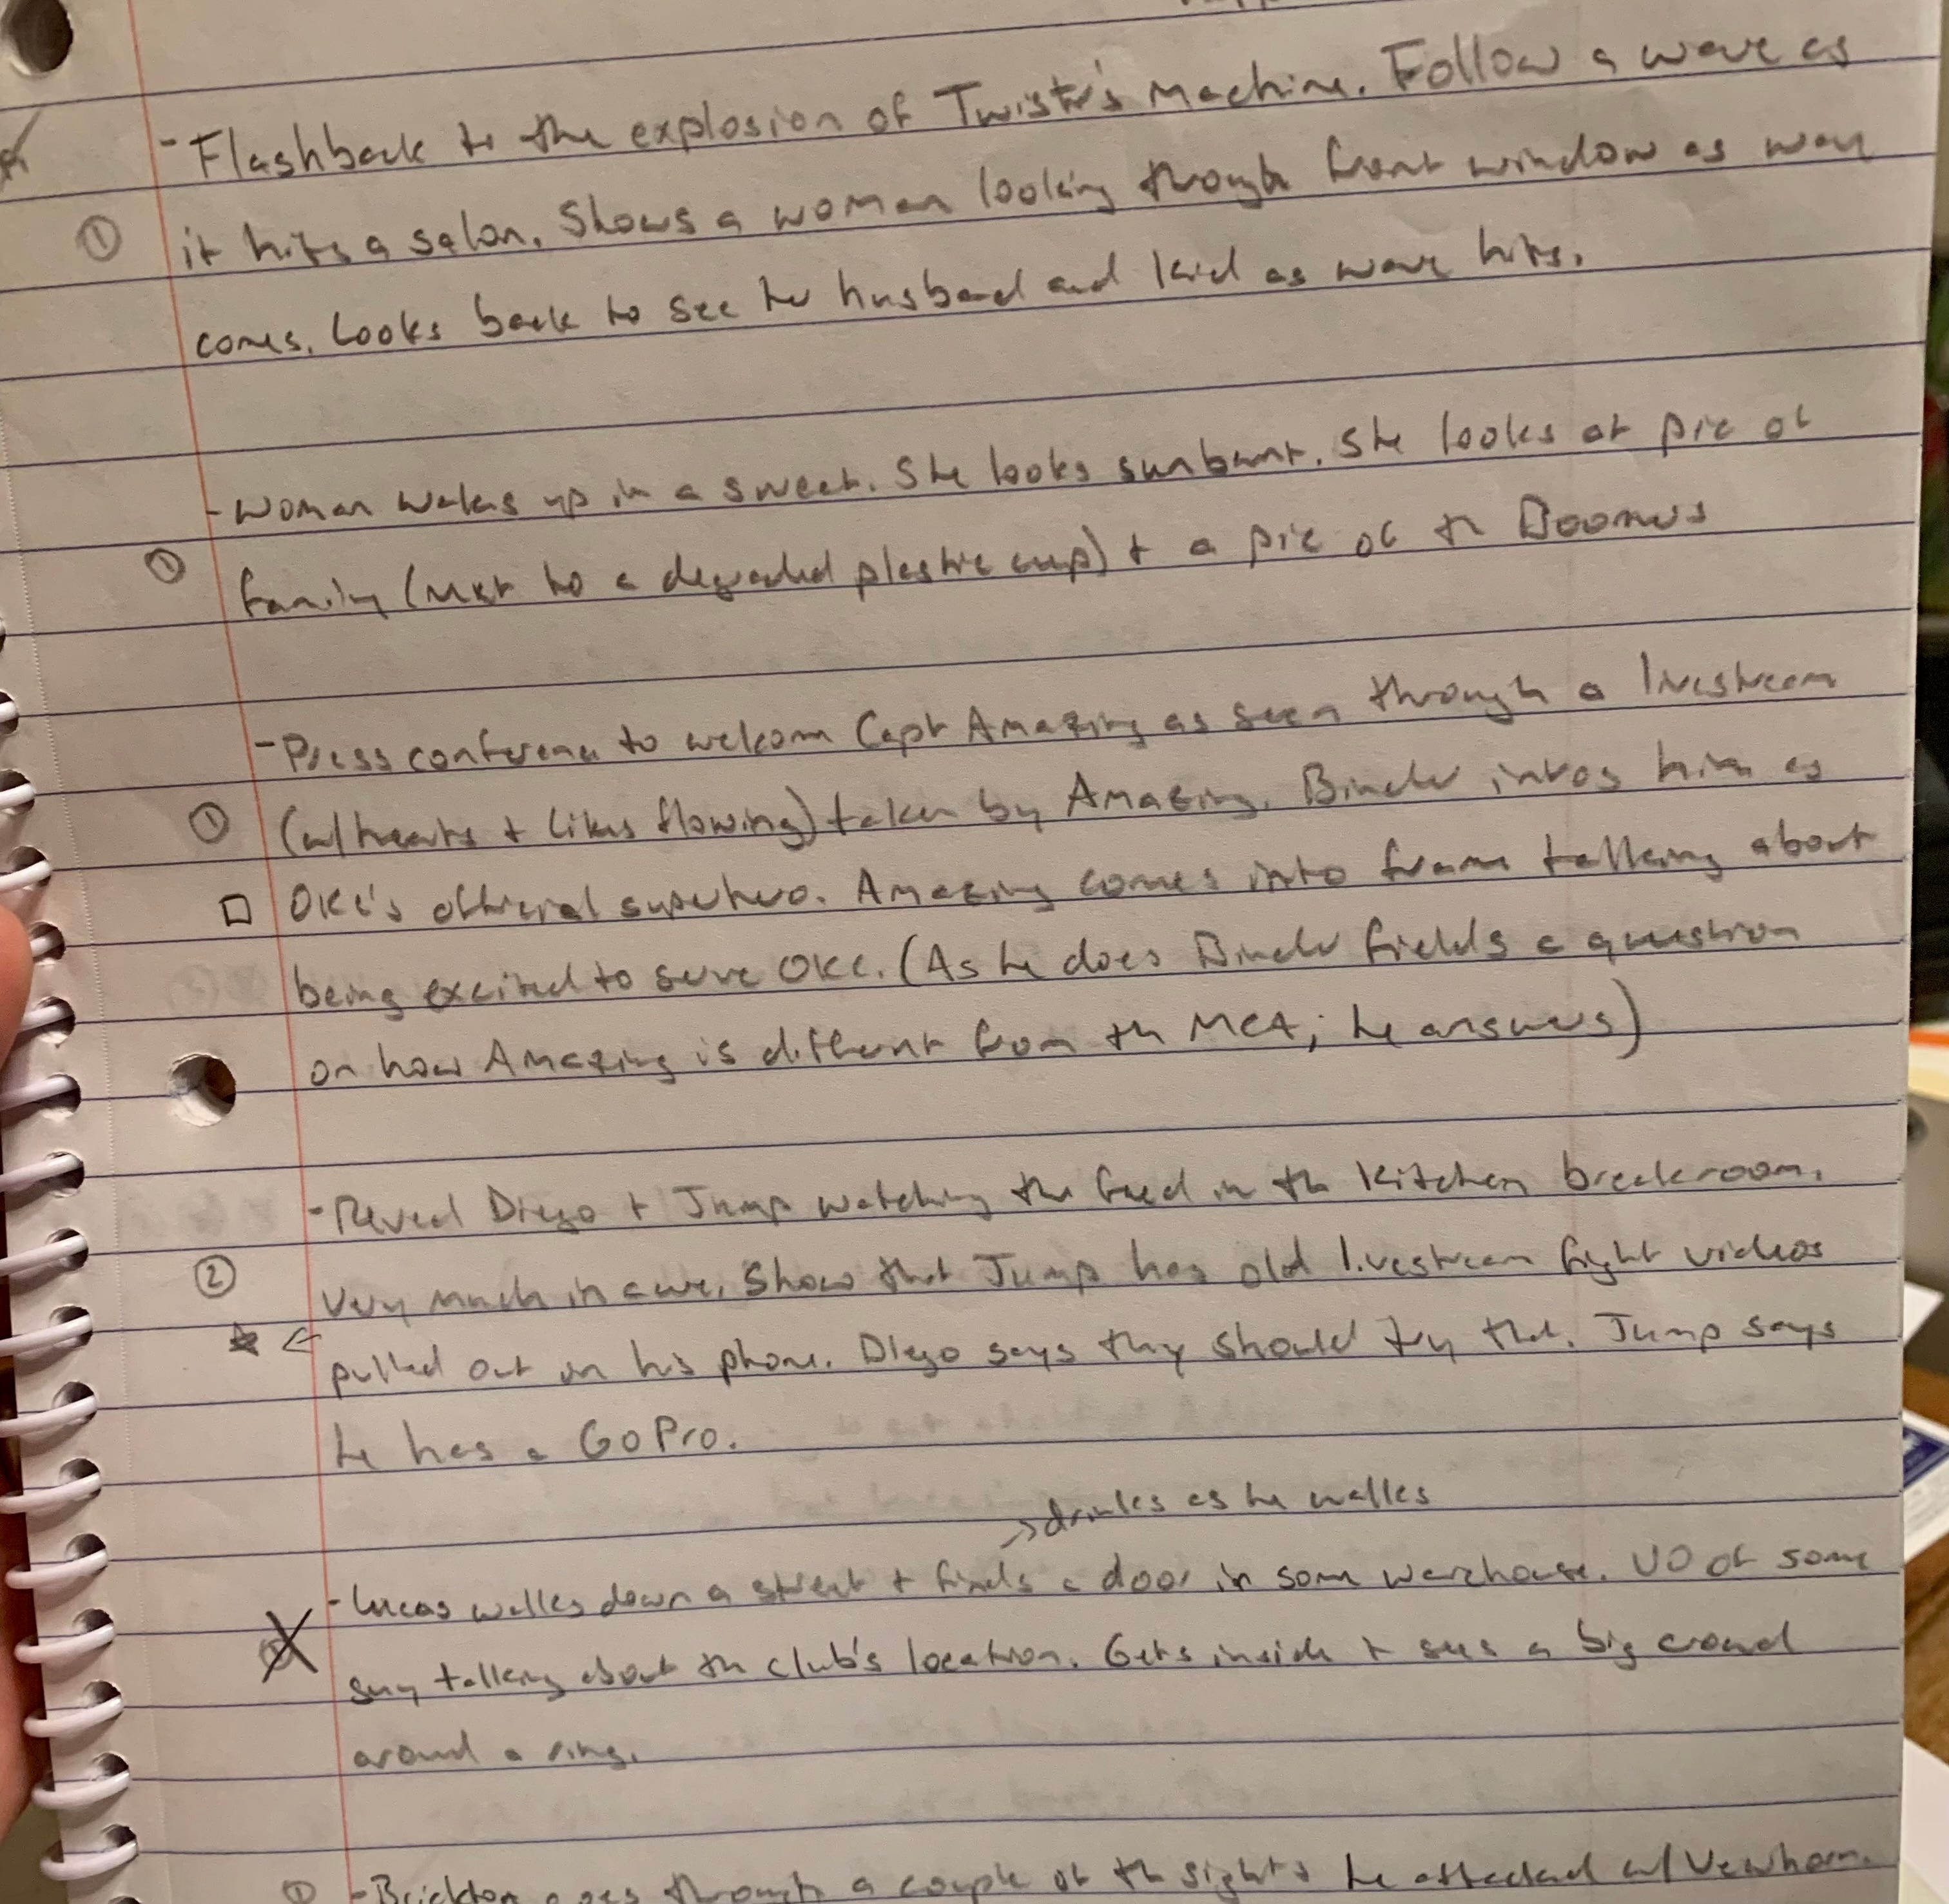 - Flashback to the explosion of Twister's Machine. Follow a wave as
① it hits a salon. Shows a woman looking through front window as wave
comes. Looks back to see her husband and kid as wave hits.
- Woman wakes up in a sweat. She looks sunburnt. She looks at pic of
① family (next to a degraded plastic cup) + a pic of the
- Press conference to welcome Capt Amazing as seen through a livestream
① (w/hearts + likes flowing) taken by Amazing. Binder intros him as
□ OKC's official superhero. Amazing comes into frame talking about
being excited to serve OKC. (As he does Binder fields a question
on how Amazing is different from the MCA; he answers)
- Reveal Diego + Jump watching the feed in the kitchen breakroom.
② Very much in awe. Show that Jump has old livestream fight videos
★ ← pulled out on his phone. Diego says they should try that. Jump says
he has a GoPro.
→ drinks as he walks
- Lucas walks down a street + finds a door in some warehouse. VO of some
guy talking about the club's location. Gets inside + sees a big crowd
around a ring.
① - Brickton goes through a couple of the sights he attacked w/